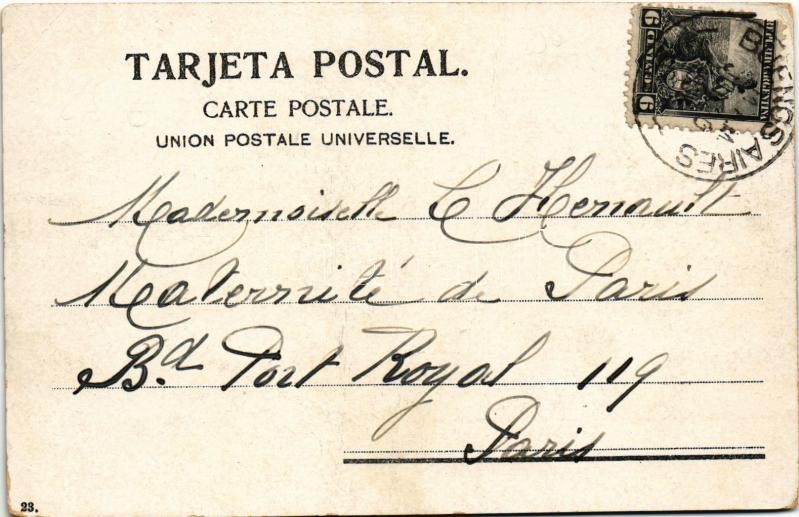 TARJETA POSTAL.
CARTE POSTALE.
UNION POSTALE UNIVERSELLE.
6 CENTAVOS 6
REPUBLICA ARGENTINA
BUENOS AIRES
Mademoiselle C Henault
Maternité de Paris
Bd Port Royal 119
Paris
23.